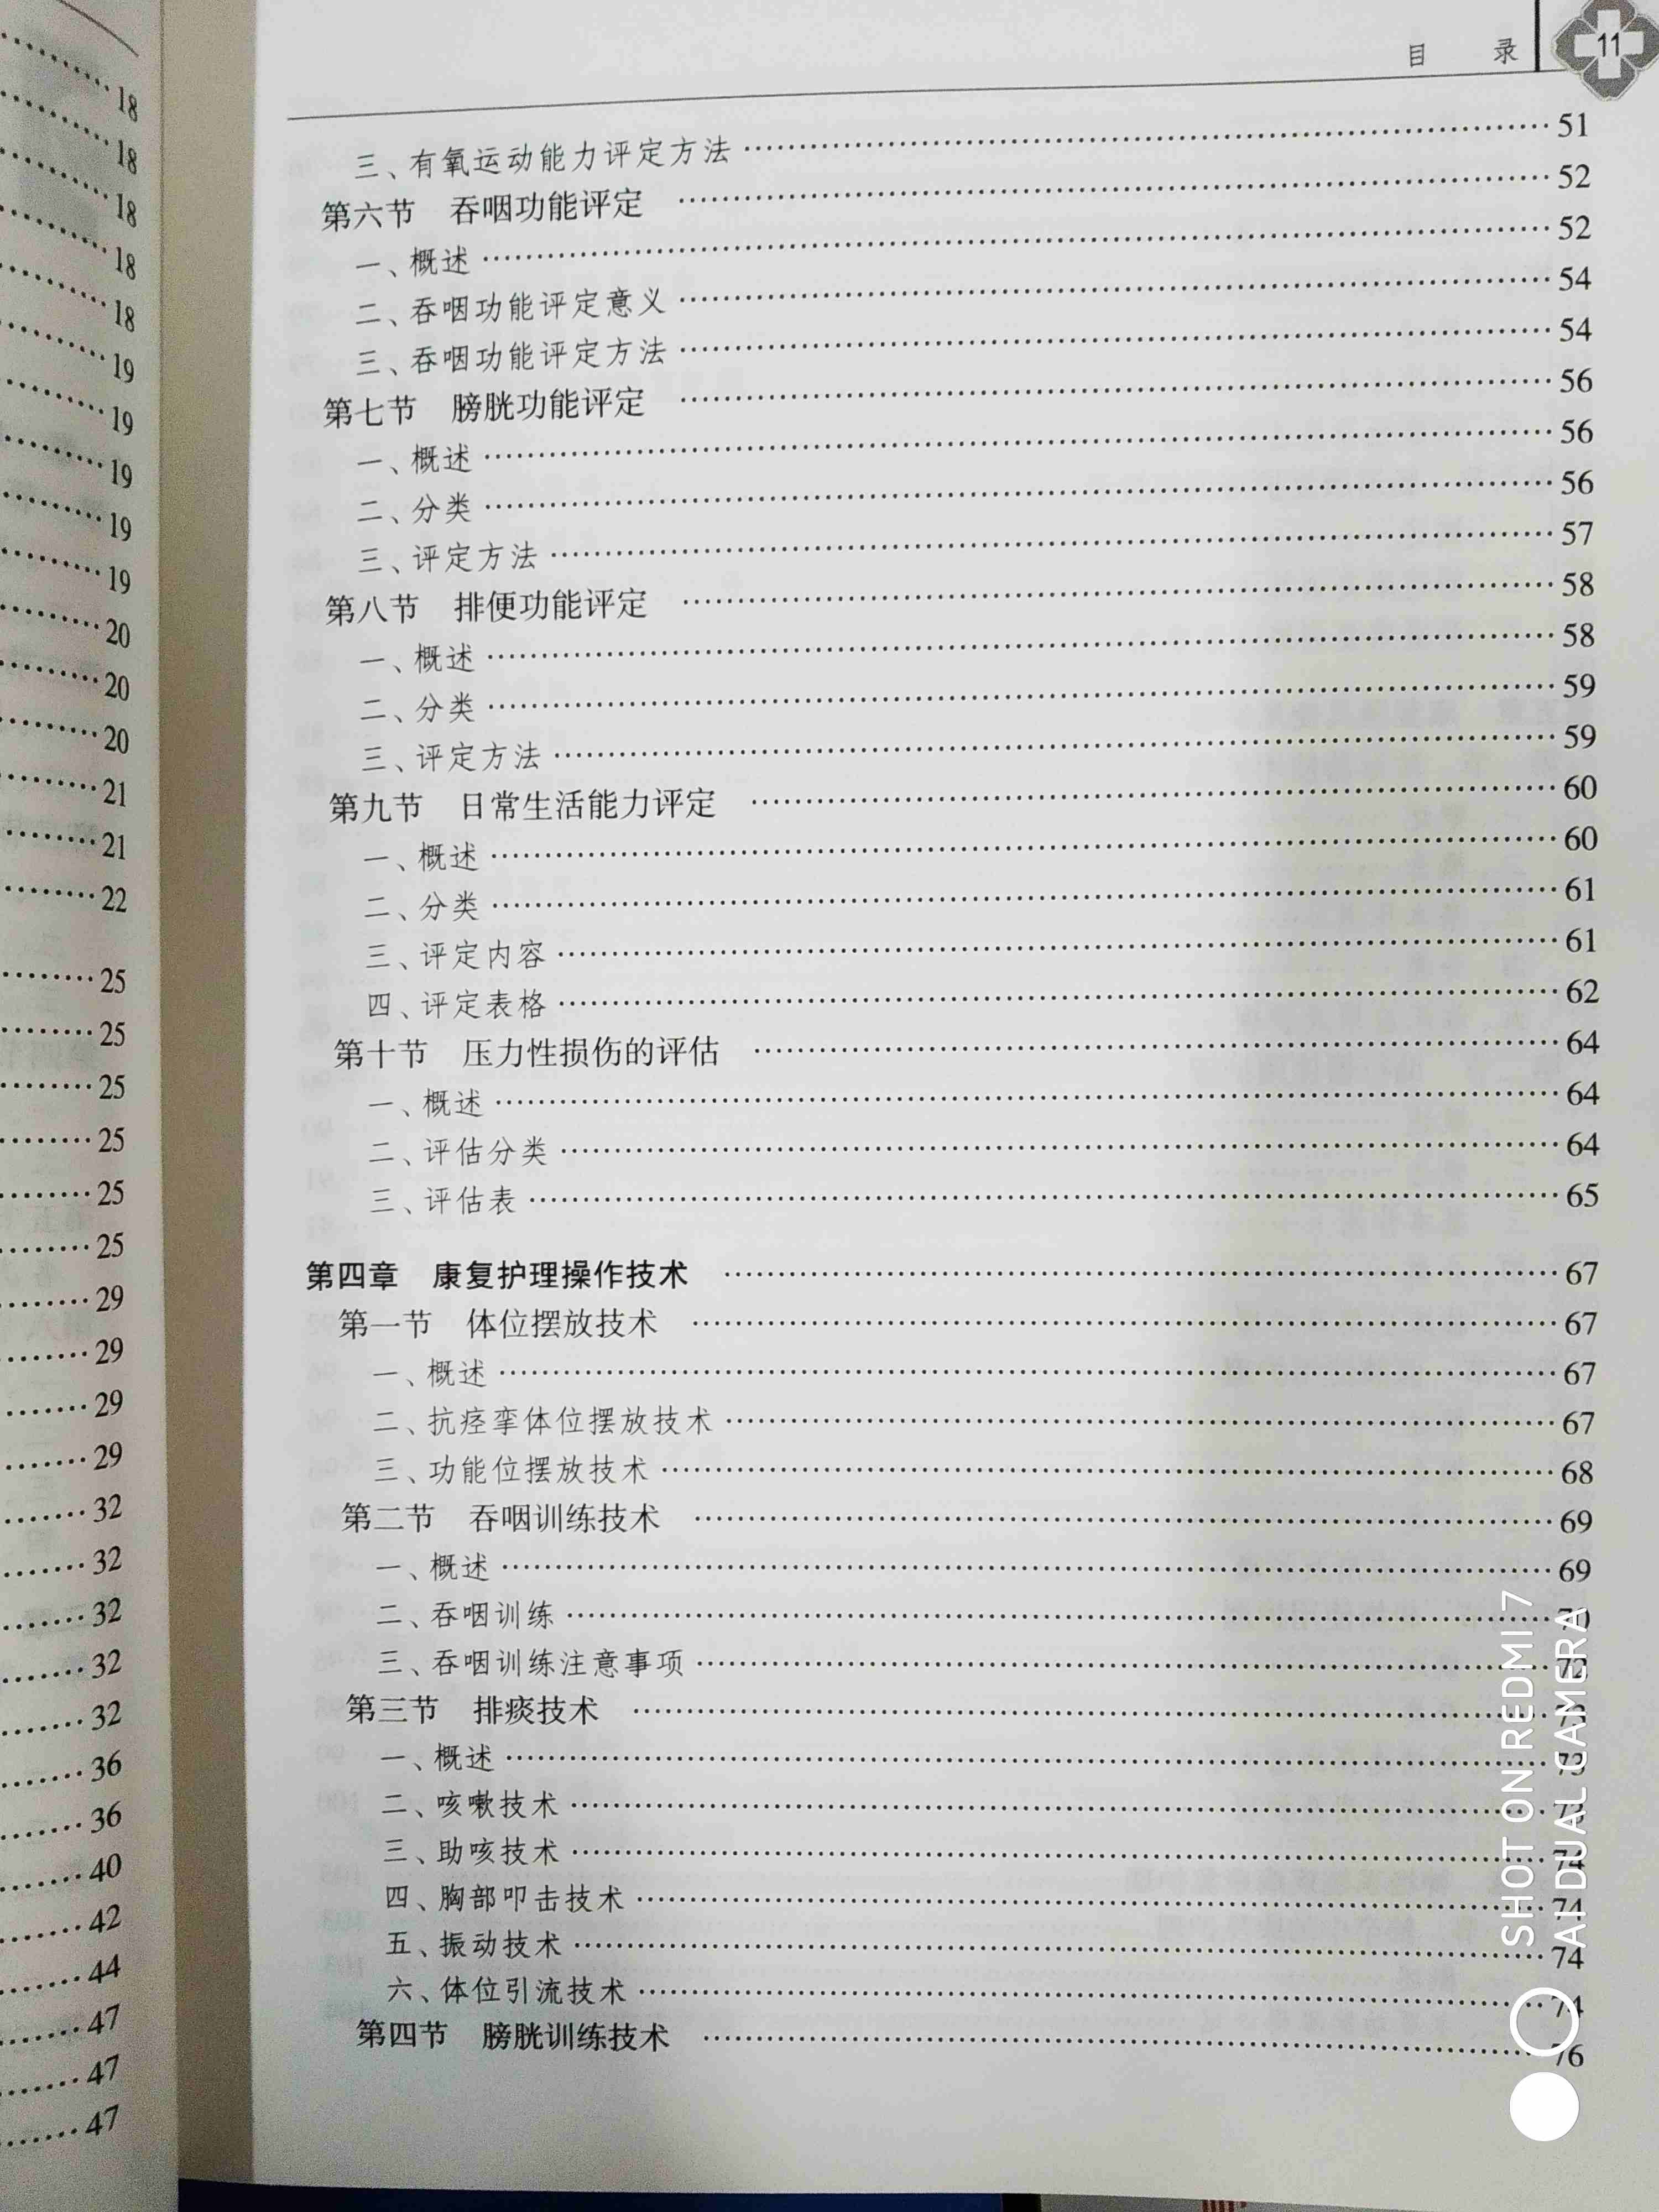 18
18
18
18
18
19
19
19
19
19
20
20
20
21
21
22
25
25
25
25
25
25
29
29
29
29
32
32
32
32
32
36
36
40
42
44
47
47
47
目 录 11
三、有氧运动能力评定方法 …… 51
第六节 吞咽功能评定 …… 52
一、概述 …… 52
二、吞咽功能评定意义 …… 54
三、吞咽功能评定方法 …… 54
第七节 膀胱功能评定 …… 56
一、概述 …… 56
二、分类 …… 56
三、评定方法 …… 57
第八节 排便功能评定 …… 58
一、概述 …… 58
二、分类 …… 59
三、评定方法 …… 59
第九节 日常生活能力评定 …… 60
一、概述 …… 60
二、分类 …… 61
三、评定内容 …… 61
四、评定表格 …… 62
第十节 压力性损伤的评估 …… 64
一、概述 …… 64
二、评估分类 …… 64
三、评估表 …… 65
第四章 康复护理操作技术 …… 67
第一节 体位摆放技术 …… 67
一、概述 …… 67
二、抗痉挛体位摆放技术 …… 67
三、功能位摆放技术 …… 68
第二节 吞咽训练技术 …… 69
一、概述 …… 69
二、吞咽训练 …… 70
三、吞咽训练注意事项 …… 72
第三节 排痰技术 …… 73
一、概述 …… 73
二、咳嗽技术 …… 73
三、助咳技术 …… 74
四、胸部叩击技术 …… 74
五、振动技术 …… 74
六、体位引流技术 …… 74
第四节 膀胱训练技术 …… 76
SHOT ON REDMI 7
AI DUAL CAMERA